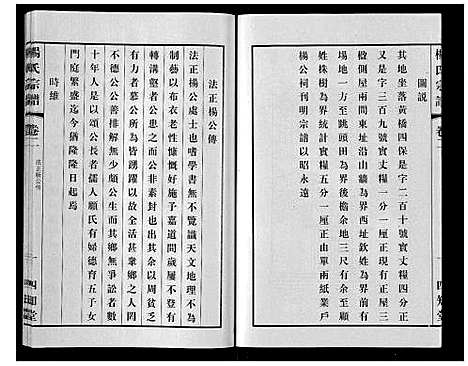 楊氏宗譜
卷二
四知堂
圖説
其地坐落黃橋四保是字二百十號實丈糧四分正
又是字三百九號實丈糧一分一厘正現有正屋三
楹側屋兩間東址沿山牆為界西址欽姓為界前有
場地一方至跳頭田為界後檐余地三尺有何姓顧
姓株樹為界統計實糧五分一厘正由單兩紙業戶
楊公祠刊明宗譜以昭永遠
法正楊公傳
法正楊公處士也嗜學書無不覽識天文地理不為
藝制以布衣老性慷慨好施予嘉道間歲屢不登有
轉溝壑者公患之而公非素封也出其余以周貧乏
有力者慕公所為皆踴躍以故全活甚衆鄉之人罔
不德公公善排解無少頗公生而其鄉無事訟者數
十年人是以頌公長者儒人顧氏有婦德育五子女
門庭繁盛迄今猶隆隆日起焉
時維
楊氏宗譜
卷二
法正楊公傳
一
四知堂